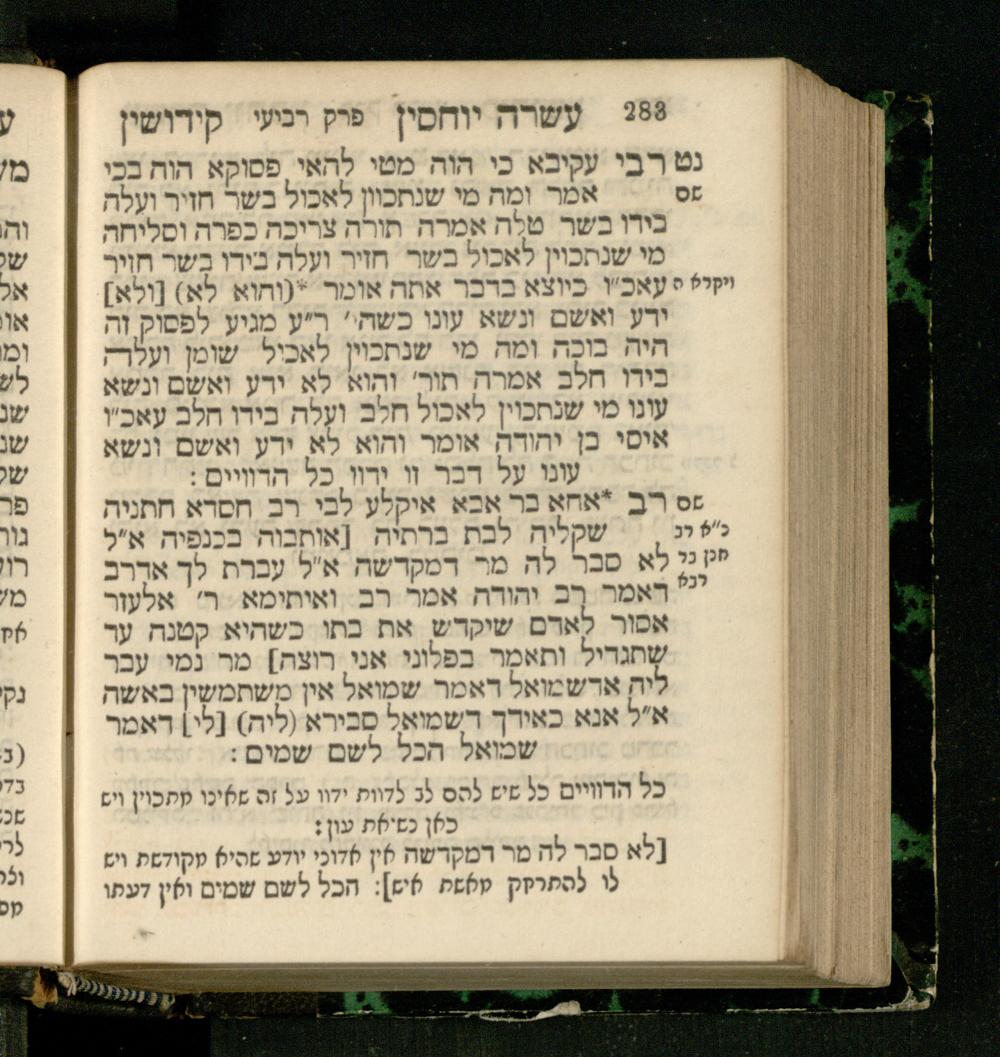 283 עשרה יוחסין פרק רביעי קידושין
נט רבי עקיבא כי הוה מטי להאי פסוקא הוה בכי
שם אמר ומה מי שנתכוון לאכול בשר חזיר ועלה
בידו בשר טלה אמרה תורה צריכה כפרה וסליחה
מי שנתכוין לאכול בשר חזיר ועלה בידו בשר חזיר
ויקרא ה עאכ״ו כיוצא בדבר אתה אומר *(והוא לא) [ולא]
ידע ואשם ונשא עונו כשהי׳ ר״ע מגיע לפסוק זה
היה בוכה ומה מי שנתכוין לאכול שומן ועלה
בידו חלב אמרה תור׳ והוא לא ידע ואשם ונשא
עונו מי שנתכוין לאכול חלב ועלה בידו חלב עאכ״ו
איסי בן יהודה אומר והוא לא ידע ואשם ונשא
עונו על דבר זו ידוו כל הדוויים :
שם רב *אחא בר אבא איקלע לבי רב חסדא חתניה
נ״א רב שקליה לבת ברתיה [אותבוה בכנפיה א״ל
חנן בר לא סבר לה מר דמקדשה א״ל עברת לך אדרב
רבא דאמר רב יהודה אמר רב ואיתימא ר׳ אלעזר
אסור לאדם שיקדש את בתו כשהיא קטנה עד
שתגדיל ותאמר בפלוני אני רוצה] מר נמי עבר
ליה אדשמואל דאמר שמואל אין משתמשין באשה
א״ל אנא כאידך דשמואל סבירא (ליה) [לי] דאמר
שמואל הכל לשם שמים :
כל הדוויים כל שיש להם לב לדוות ידוו על זה שאינו מתכוין ויש
כאן נשיאת עון :
[לא סבר לה מר דמקדשה אין אדוני יודע שהיא מקודשת ויש
לו להתרחק מאשת איש]: הכל לשם שמים ואין דעתו